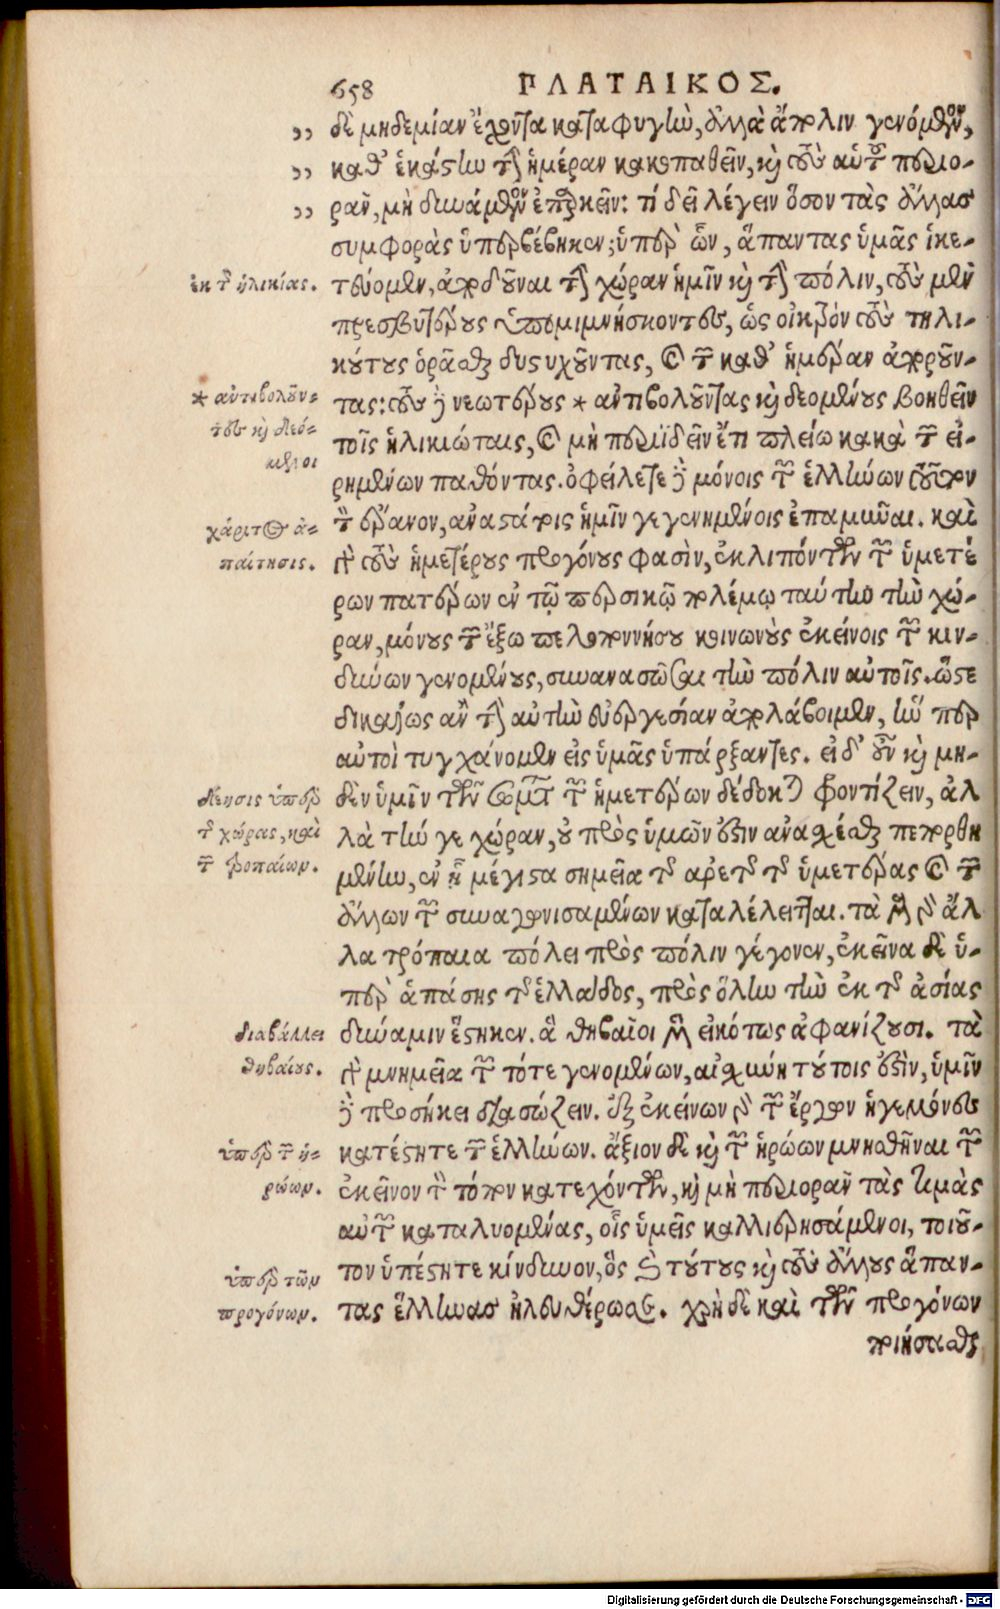 658 ΠΛΑΤΑΙΚΟΣ.
,, δὲ μηδεμίαν ἔχοντα καταφυγὴν, ἀλλὰ ἄπολιν γενόμενον,
,, καθ' ἑκάστην τὴν ἡμέραν κακοπαθεῖν, καὶ τοὺς αὑτοῦ περιο-
,, ρᾶν, μὴ δυνάμενον ἐπαρκεῖν: τί δεῖ λέγειν ὅσον τὰς ἄλλας
συμφορὰς ὑπερβέβηκεν; ὑπὲρ ὧν, ἅπαντας ὑμᾶς ἱκε-
ἐκ τῆς ἡλικίας.
τεύομεν, ἀποδοῦναι τὴν χώραν ἡμῖν καὶ τὴν πόλιν, τοὺς μὲν
πρεσβυτέρους ὑπομιμνήσκοντες, ὡς οἰκτρὸν τοὺς τηλι-
κούτους ὁρᾶσθαι δυστυχοῦντας, καὶ τῶν καθ' ἡμέραν ἀποροῦν-
* ἀντιβολοῦν-
τες καὶ δεό-
μενοι
τας: τοὺς δὲ νεωτέρους * ἀντιβολοῦντας καὶ δεομένους βοηθεῖν
τοῖς ἡλικιώταις, καὶ μὴ περιϊδεῖν ἔτι πλείω κακὰ τῶν εἰ-
ρημένων παθόντας. ὀφείλετε δὲ μόνοις τῶν ἑλλήνων τοῦτον
χάριτος ἀ-
παίτησις.
τὸν ἔρανον, ἀναστάτοις ἡμῖν γεγενημένοις ἐπαμῦναι. καὶ
γὰρ τοὺς ἡμετέρους προγόνους φασὶν, ἐκλιπόντων τῶν ὑμετέ
ρων πατέρων ἐν τῷ περσικῷ πολέμῳ ταύτην τὴν χώ-
ραν, μόνους τῶν ἔξω πελοποννήσου κοινωνοὺς ἐκείνοις τῶν κιν-
δύνων γενομένους, συνανασῶσαι τὴν πόλιν αὐτοῖς. ὥστε
δικαίως ἂν τὴν αὐτὴν εὐεργεσίαν ἀπολάβοιμεν, ἥν περ
αὐτοὶ τυγχάνομεν εἰς ὑμᾶς ὑπάρξαντες. εἰ δ' οὖν καὶ μη-
δέησις ὑπὲρ
τῆς χώρας, καὶ
τῶν τροπαίων.
δὲν ὑμῖν τῶν σωμάτων τῶν ἡμετέρων δέδοκται φροντίζειν, ἀλ
λὰ τήν γε χώραν, οὐ πρὸς ὑμῶν ἐστιν ἀνασχέσθαι πεπορθη
μένην, ἐν ᾗ μέγιστα σημεῖα τῆς ἀρετῆς τῆς ὑμετέρας καὶ τῶν
ἄλλων τῶν συναγωνισαμένων καταλέλειπται. τὰ μὲν γὰρ ἄλ
λα τρόπαια πόλει πρὸς πόλιν γέγονεν, ἐκεῖνα δὲ ὑ-
πὲρ ἁπάσης τῆς ἑλλάδος, πρὸς ὅλην τὴν ἐκ τῆς ἀσίας
διαβάλλει
θηβαίους.
δύναμιν ἕστηκεν. ἃ θηβαῖοι μὲν εἰκότως ἀφανίζουσι. τὰ
γὰρ μνημεῖα τῶν τότε γενομένων, αἰσχύνη τούτοις ἐστὶν, ὑμῖν
δὲ προσήκει διασώζειν. ἐξ ἐκείνων γὰρ τῶν ἔργων ἡγεμόνες
ὑπὲρ τῶν ἡ-
ρώων.
κατέστητε τῶν ἑλλήνων. ἄξιον δὲ καὶ τῶν ἡρώων μνησθῆναι τῶν
ἐκεῖνον τὸν τόπον κατεχόντων, καὶ μὴ περιορᾶν τὰς τιμὰς
αὐτῶν καταλυομένας, οἷς ὑμεῖς καλλιερησάμενοι, τοιοῦ-
ὑπὲρ τῶν
προγόνων.
τον ὑπέστητε κίνδυνον, ὃς καὶ τούτους καὶ τοὺς ἄλλους ἅπαν-
τας ἕλληνας ἠλευθέρωσε. χρὴ δὲ καὶ τῶν προγόνων
ποιήσασθαι
Digitalisierung gefördert durch die Deutsche Forschungsgemeinschaft - DFG